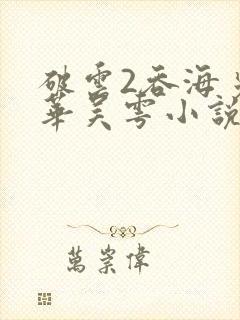 破雲2吞海吳
華吳雩小說
萬崇偉